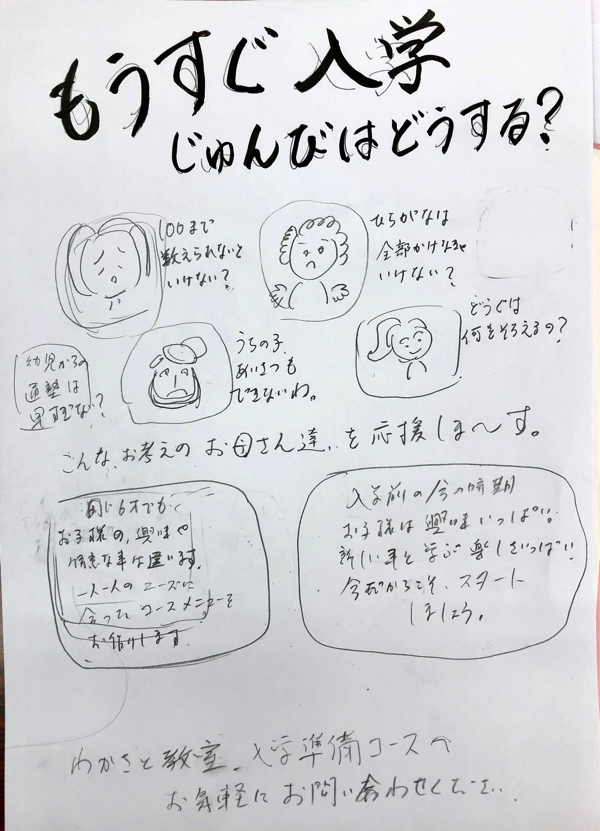 もうすぐ入学
じゅんびはどうする?
100まで
数えられないと
いけない?
ひらがなは
全部かけなきゃ
いけない?
うちの子
あいさつも
できないわ。
どうぐは
何をそろえるの?
幼児からの
通塾は
早すぎない?
こんな、お考えの お母さん達、を応援しま〜す。
同じ6才でも
お子様の、興味や
得意な事は違います。
一人一人の ニーズに
合った コースメニューを
お届けします
入学前の今の時期
お子様は 興味いっぱい。
新しい事を学ぶ 楽しさいっぱい
今だからこそ、スタート
しましょう。
わかさと教室、入学準備コースへ
お気軽に お問い合わせください。